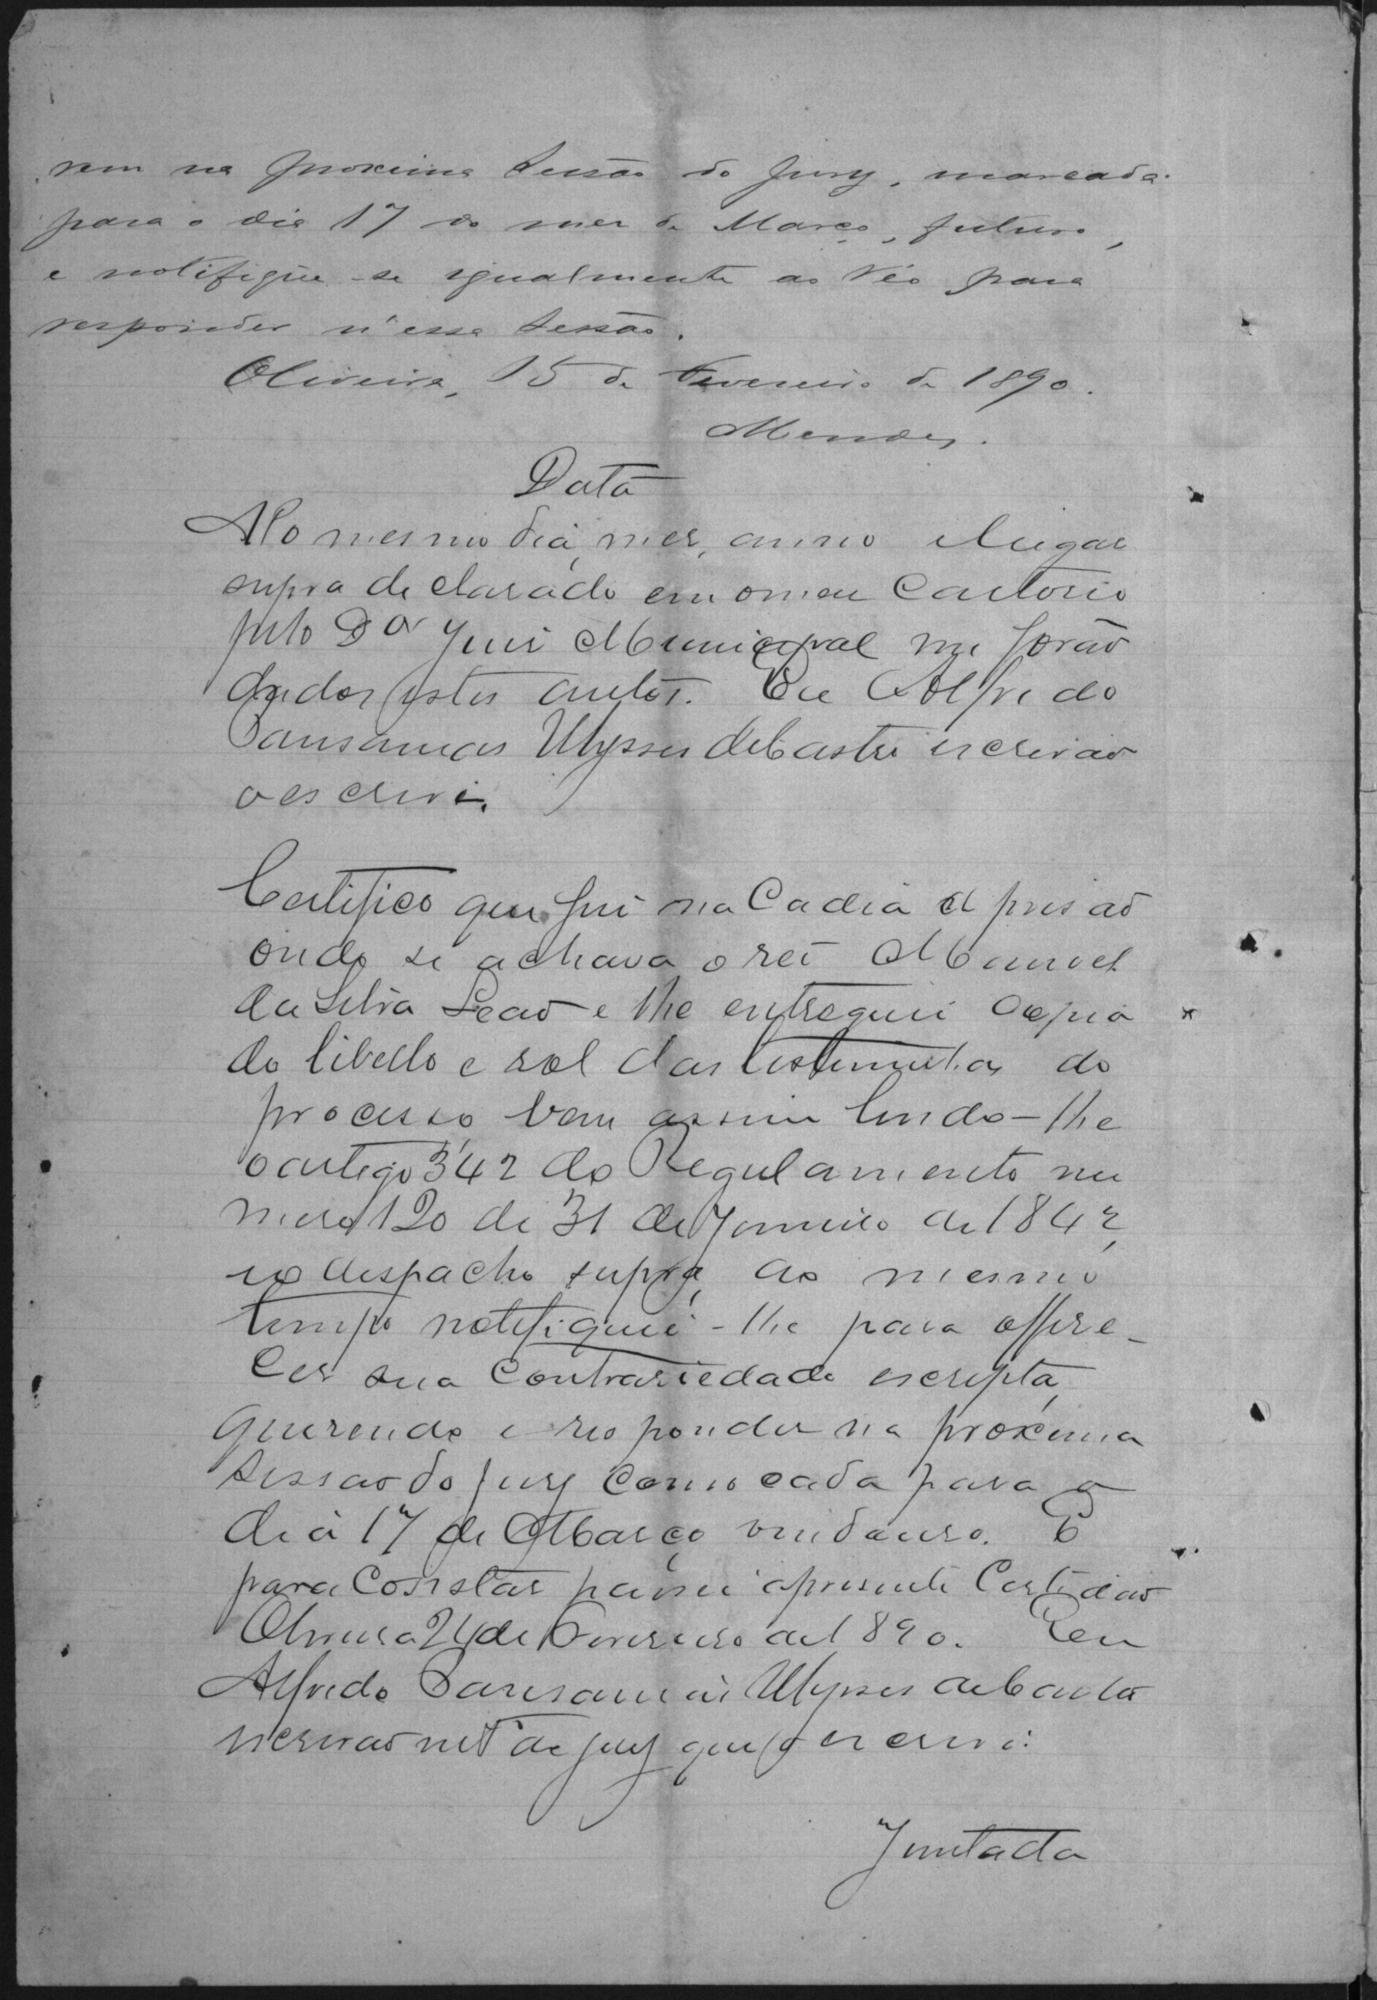 rem na proxima sessão do Jury, marcada
para o dia 17 do mez de Março, futuro,
e notifique-se igualmente ao réo para
responder n'essa sessão.
Oliveira, 15 de Fevereiro de 1890.
Mendes.
Data
No mesmo dia, mes, anno e lugar
supra declarado em o meu Cartorio
pelo Dor Juis Municipal me forão
dados estes autos. Eu Alfredo
Pausanias Ulysses de Castro escrivão
o escrivi.
Certifico que fui na Cadia e prisão
onde se achava o reo Manoel
da Silva Leão e lhe entreguei copia
do libello e rol das testimunhas do
processo bem assim lendo-lhe
o artigo 342 do Regulamento nu
mero 120 de 31 de Janeiro de 1842,
e o despacho supra, ao mesmo
tempo notifiquei-lhe para offere-
cer sua contrariedade escripta,
querendo e responder na proxima
sessão do jury convocada para o
dia 17 de Março vindouro. E
para constar passei a presente Certidão
Oliveira 24 de Fevereiro de 1890. Eu
Alfredo Pausanias Ulysses de Castro
escrivão int do jury que o escrivi.
Juntada